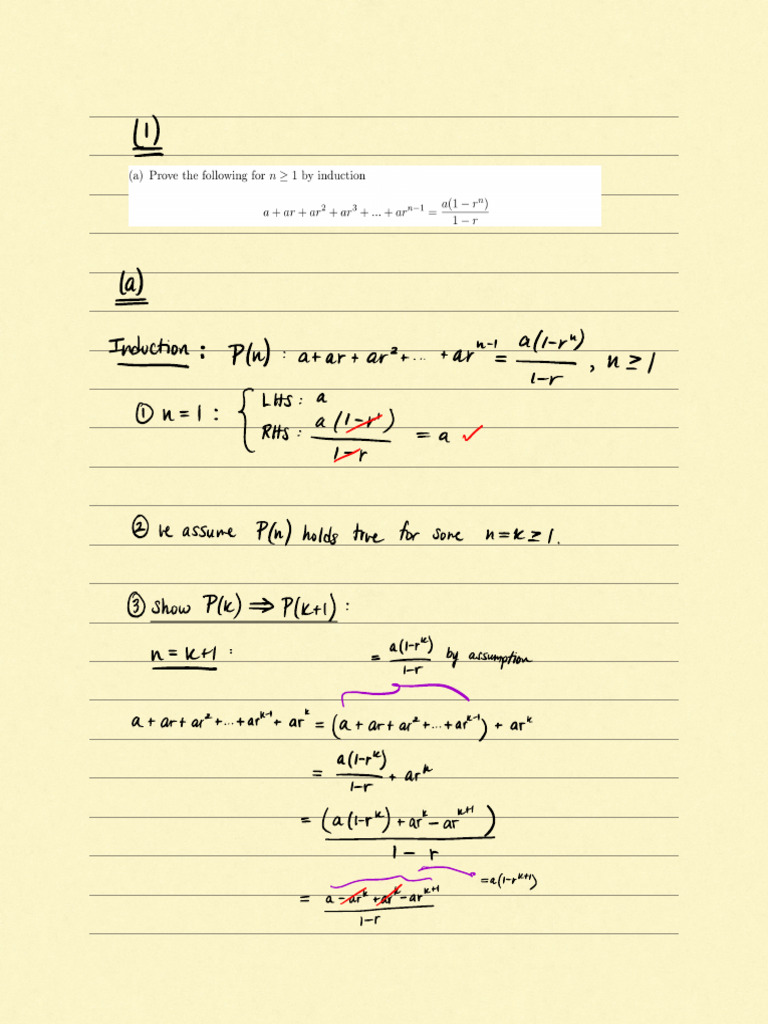 (1)
(a) Prove the following for n ≥ 1 by induction
a + ar + ar² + ar³ + ... + arⁿ⁻¹ = a(1 − rⁿ) / 1 − r
(a)
Induction : P(n) : a + ar + ar² + ... + arⁿ⁻¹ = a(1-rⁿ) / 1-r , n ≥ 1
① n = 1 : { LHS : a
RHS : a(1-r¹) / 1-r = a ✓
② we assume P(n) holds true for some n = k ≥ 1.
③ show P(k) ⇒ P(k+1) :
n = k+1 :
= a(1-rᵏ) / 1-r by assumption
a + ar + ar² + ... + arᵏ⁻¹ + arᵏ = (a + ar + ar² + ... + arᵏ⁻¹) + arᵏ
= a(1-rᵏ) / 1-r + arᵏ
= (a(1-rᵏ) + arᵏ - arᵏ⁺¹) / 1 - r
= a - arᵏ + arᵏ - arᵏ⁺¹ / 1-r
= a(1-rᵏ⁺¹)